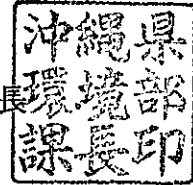 長
沖縄県
環境部
課長印